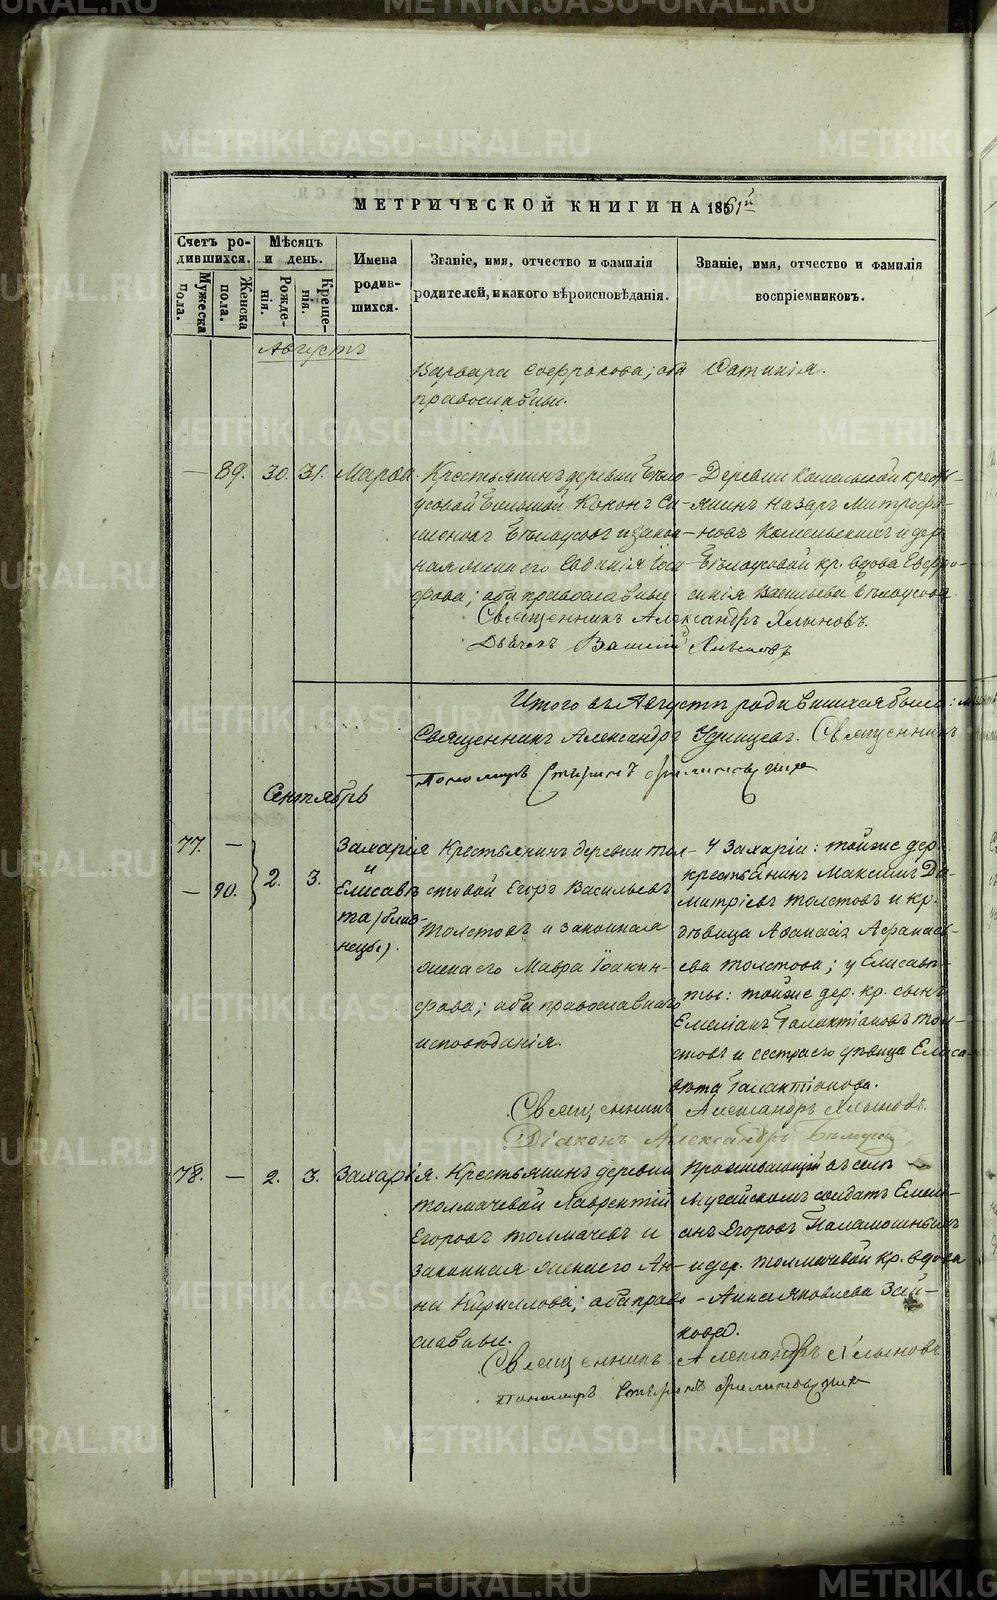 МЕТРИЧЕСКОЙ КНИГИ НА 1861й
Счетъ родившихся.
Мужеска пола.
Женска пола.
Мѣсяцъ и день.
Рожденія.
Крещенія.
Имена родившихся.
Званіе, имя, отчество и фамилія
родителей, и какого вѣроисповѣданія.
Званіе, имя, отчество и фамилія
воспріемниковъ.
Августъ
Варвара Софронова; оба
православные.
Фотинія.
— 89. 30. 31. Марѳа
Крестьянинъ деревни Бѣло-
усовой Большой
Бѣлоусовъ и закон-
ная жена его Евдокія
оба православные
Деревни кресть-
янинъ Назаръ Митрофа-
новъ и дер.
Бѣлоусовой кр. вдова Евфро-
синія Васильева Бѣлоусова
Священникъ Александръ Хлыновъ.
Дьячекъ Василій
Итого въ Августѣ родившихся было:
Священникъ Александръ Удинцевъ. Священникъ
Пономарь
Сентябрь
77. —
— 90.
2. 3.
Захарія
и
Елисаве
та (близ-
нецы).
Крестьянинъ деревни Тол-
стовой Егоръ Васильевъ
Толстовъ и законная
жена его Мавра Іоаки-
фова; оба православнаго
исповѣданія.
У Захаріи: тойже дер.
крестьянинъ Максимъ Ди-
митріевъ Толстовъ и кр.
дѣвица Аѳанасья-
ева Толстова; у Елисаве-
ты: тойже дер. кр. сынъ
Емеліанъ Галактіоновъ Тол-
стовъ и сестра его дѣвица Елиса-
вета Галактіонова.
Священникъ Александръ Хлыновъ.
Діаконъ Александръ
78. — 2. 3. Захарія.
Крестьянинъ деревни
Толмачевой Лаврентій
Егоровъ Толмачевъ и
законная жена его Ан-
на Кириллова; оба право-
славные.
Проживающій въ селѣ
Мугайскомъ солдатъ Емелі-
анъ Егоровъ
и дер. Толмачевой кр. вдова
Анна Яковлева Зай-
кова.
Священникъ Александръ Хлыновъ
Пономарь
METRIKI.GASO-URAL.RU